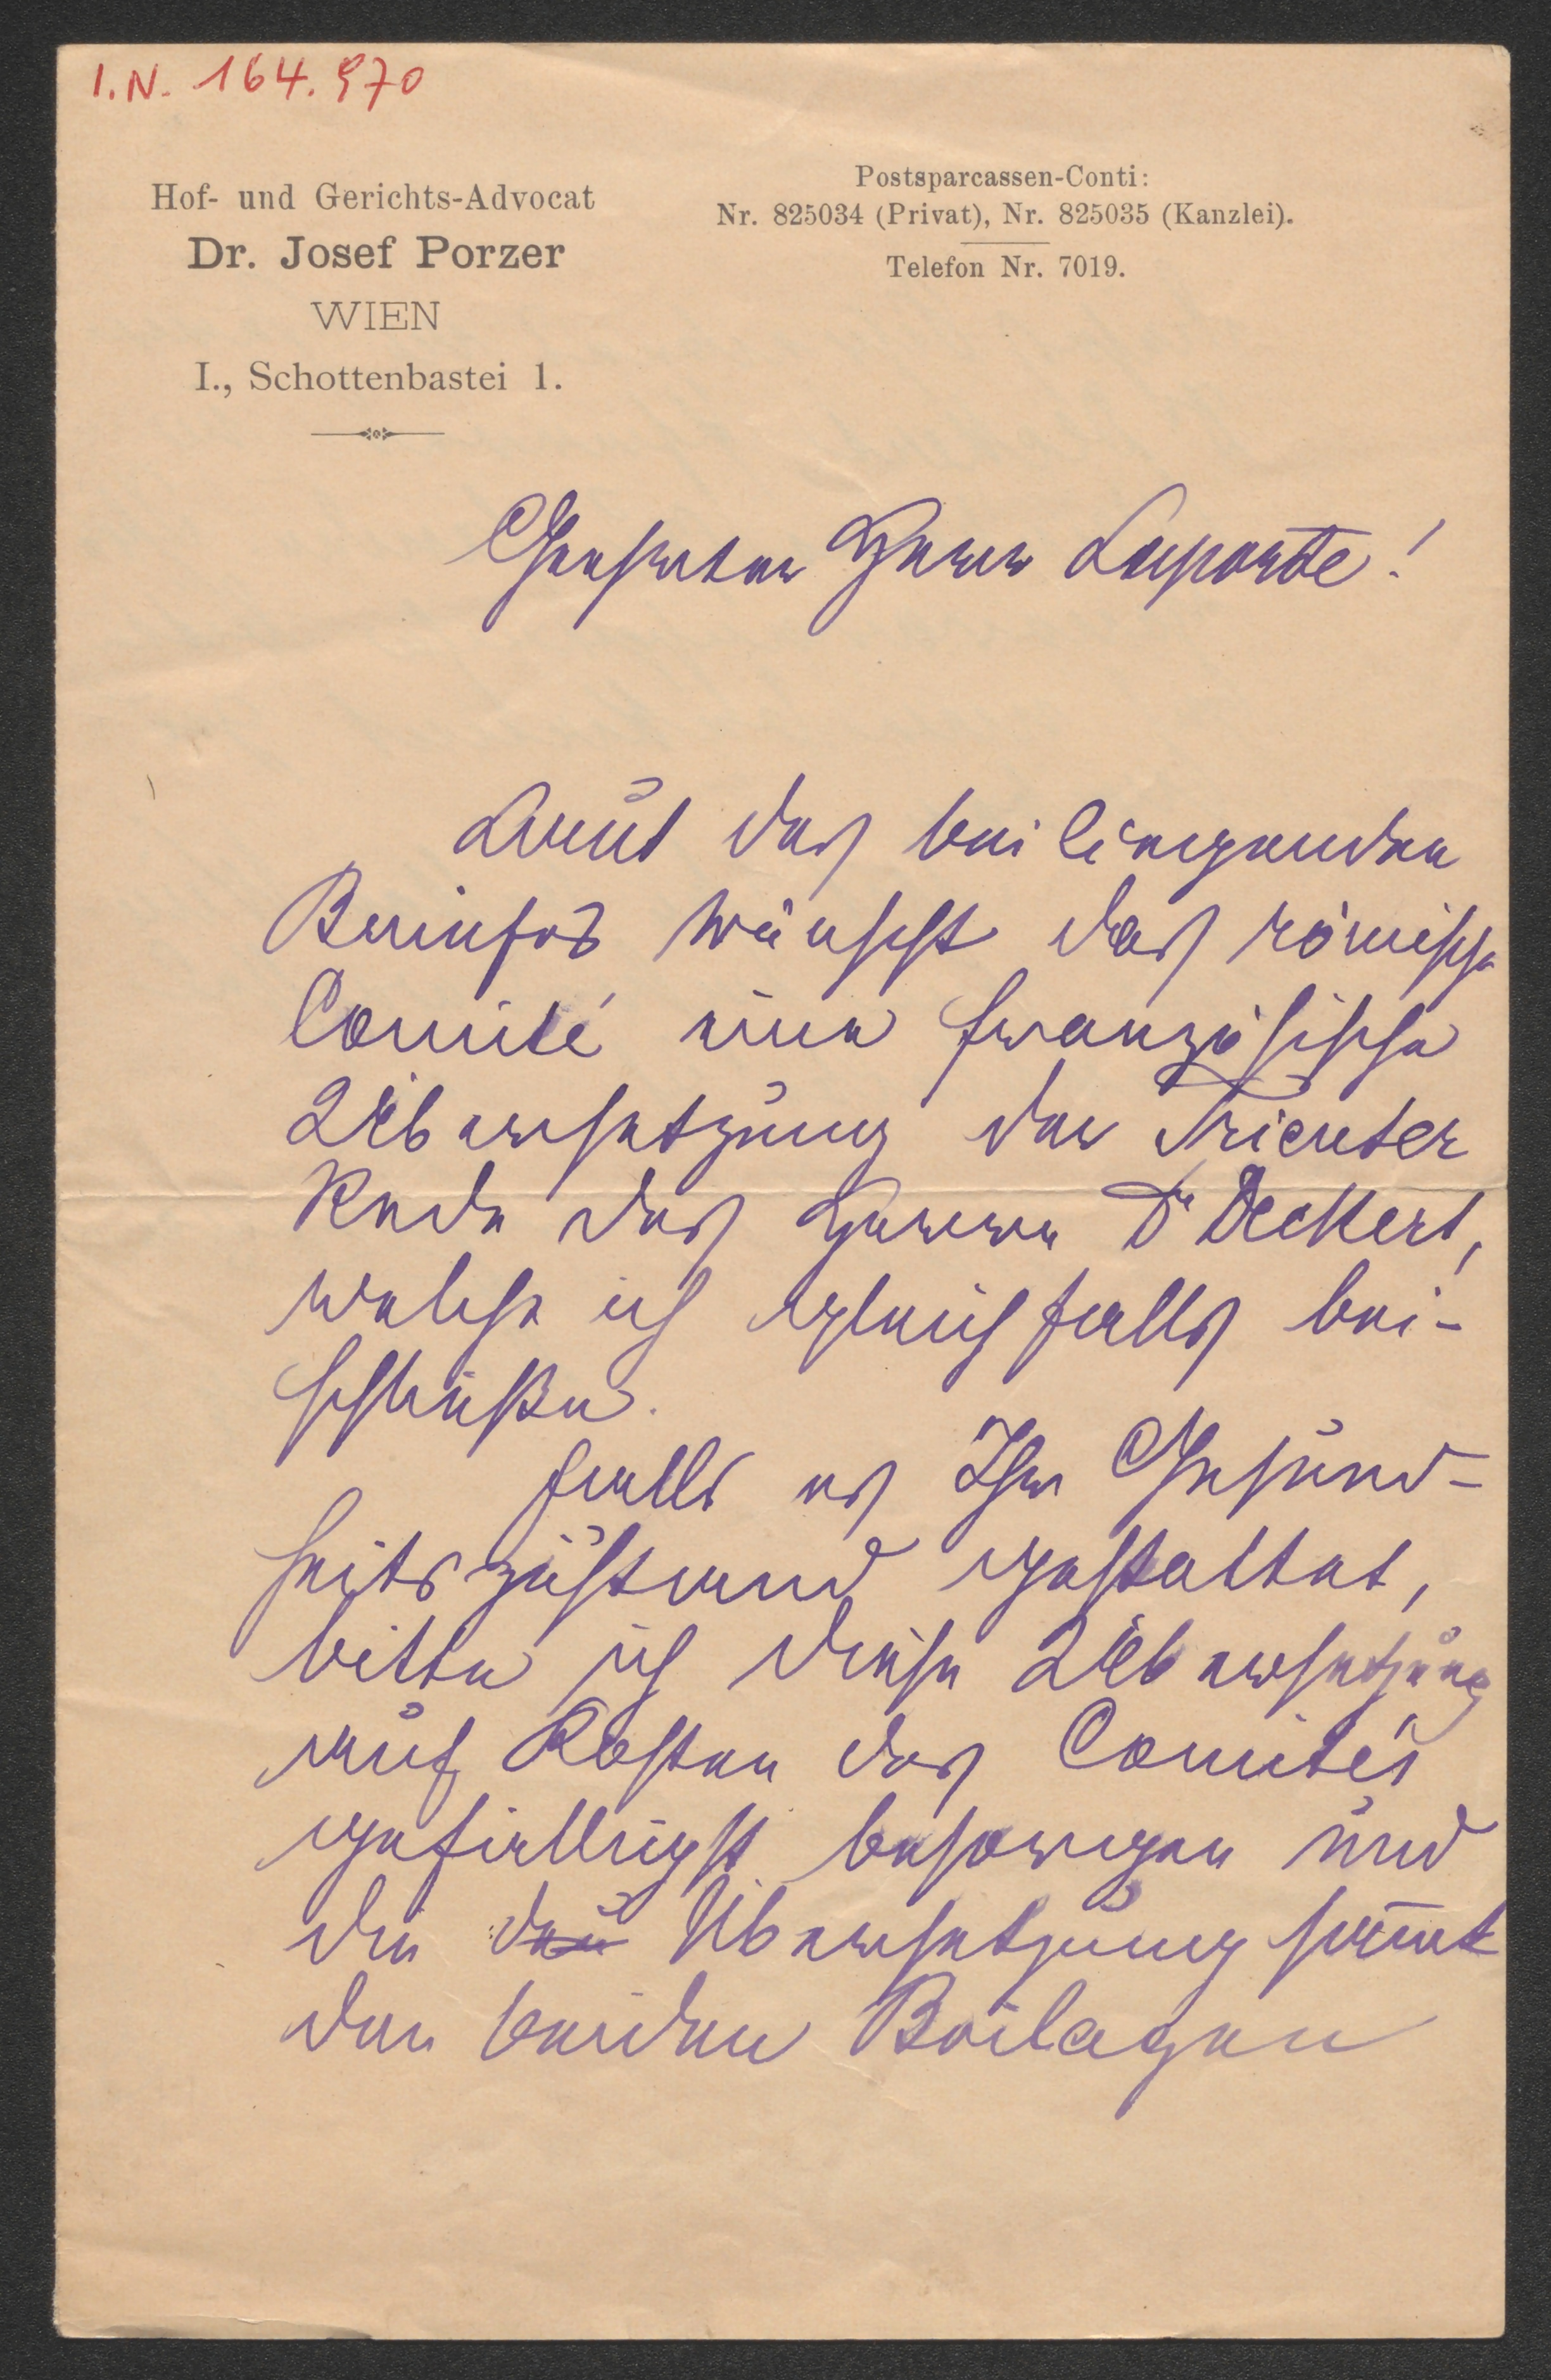 I.N. 164.970
Hof- und Gerichts-Advocat
Dr. Josef Porzer
WIEN
I., Schottenbastei 1.
Postsparcassen-Conti:
Nr. 825034 (Privat), Nr. 825035 (Kanzlei).
Telefon Nr. 7019.
Geehrter Herr Laporte!
Laut des beiliegenden
Briefes wünscht das römische
Comité eine französische
Uebersetzung der Trienter
Rede des Herrn Dr Deckert,
welche ich gleichfalls bei-
schließe.
Falls es Ihr Gesund-
heitszustand gestattet,
bitte ich diese Uebersetzung
auf Kosten des Comités
gefälligst besorgen und
die Übersetzung samt
den beiden Beilagen